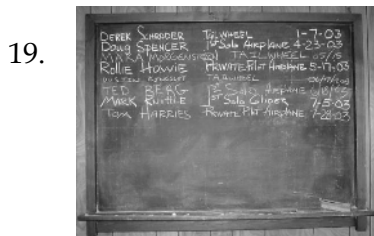 19.
DEREK SCHRADER TAILWHEEL 1-7-03
Doug SPENCER 1ST Solo AIRPLANE 4-23-03
TAILWHEEL
Rollie Howie PRIVATE PILOT AIRPLANE 5-17-03
TAILWHEEL
TED BERG 1ST Solo AIRPLANE
MARK 1ST Solo Glider 7-5-03
Tom HARRIES PRIVATE PILOT AIRPLANE 7-28-03